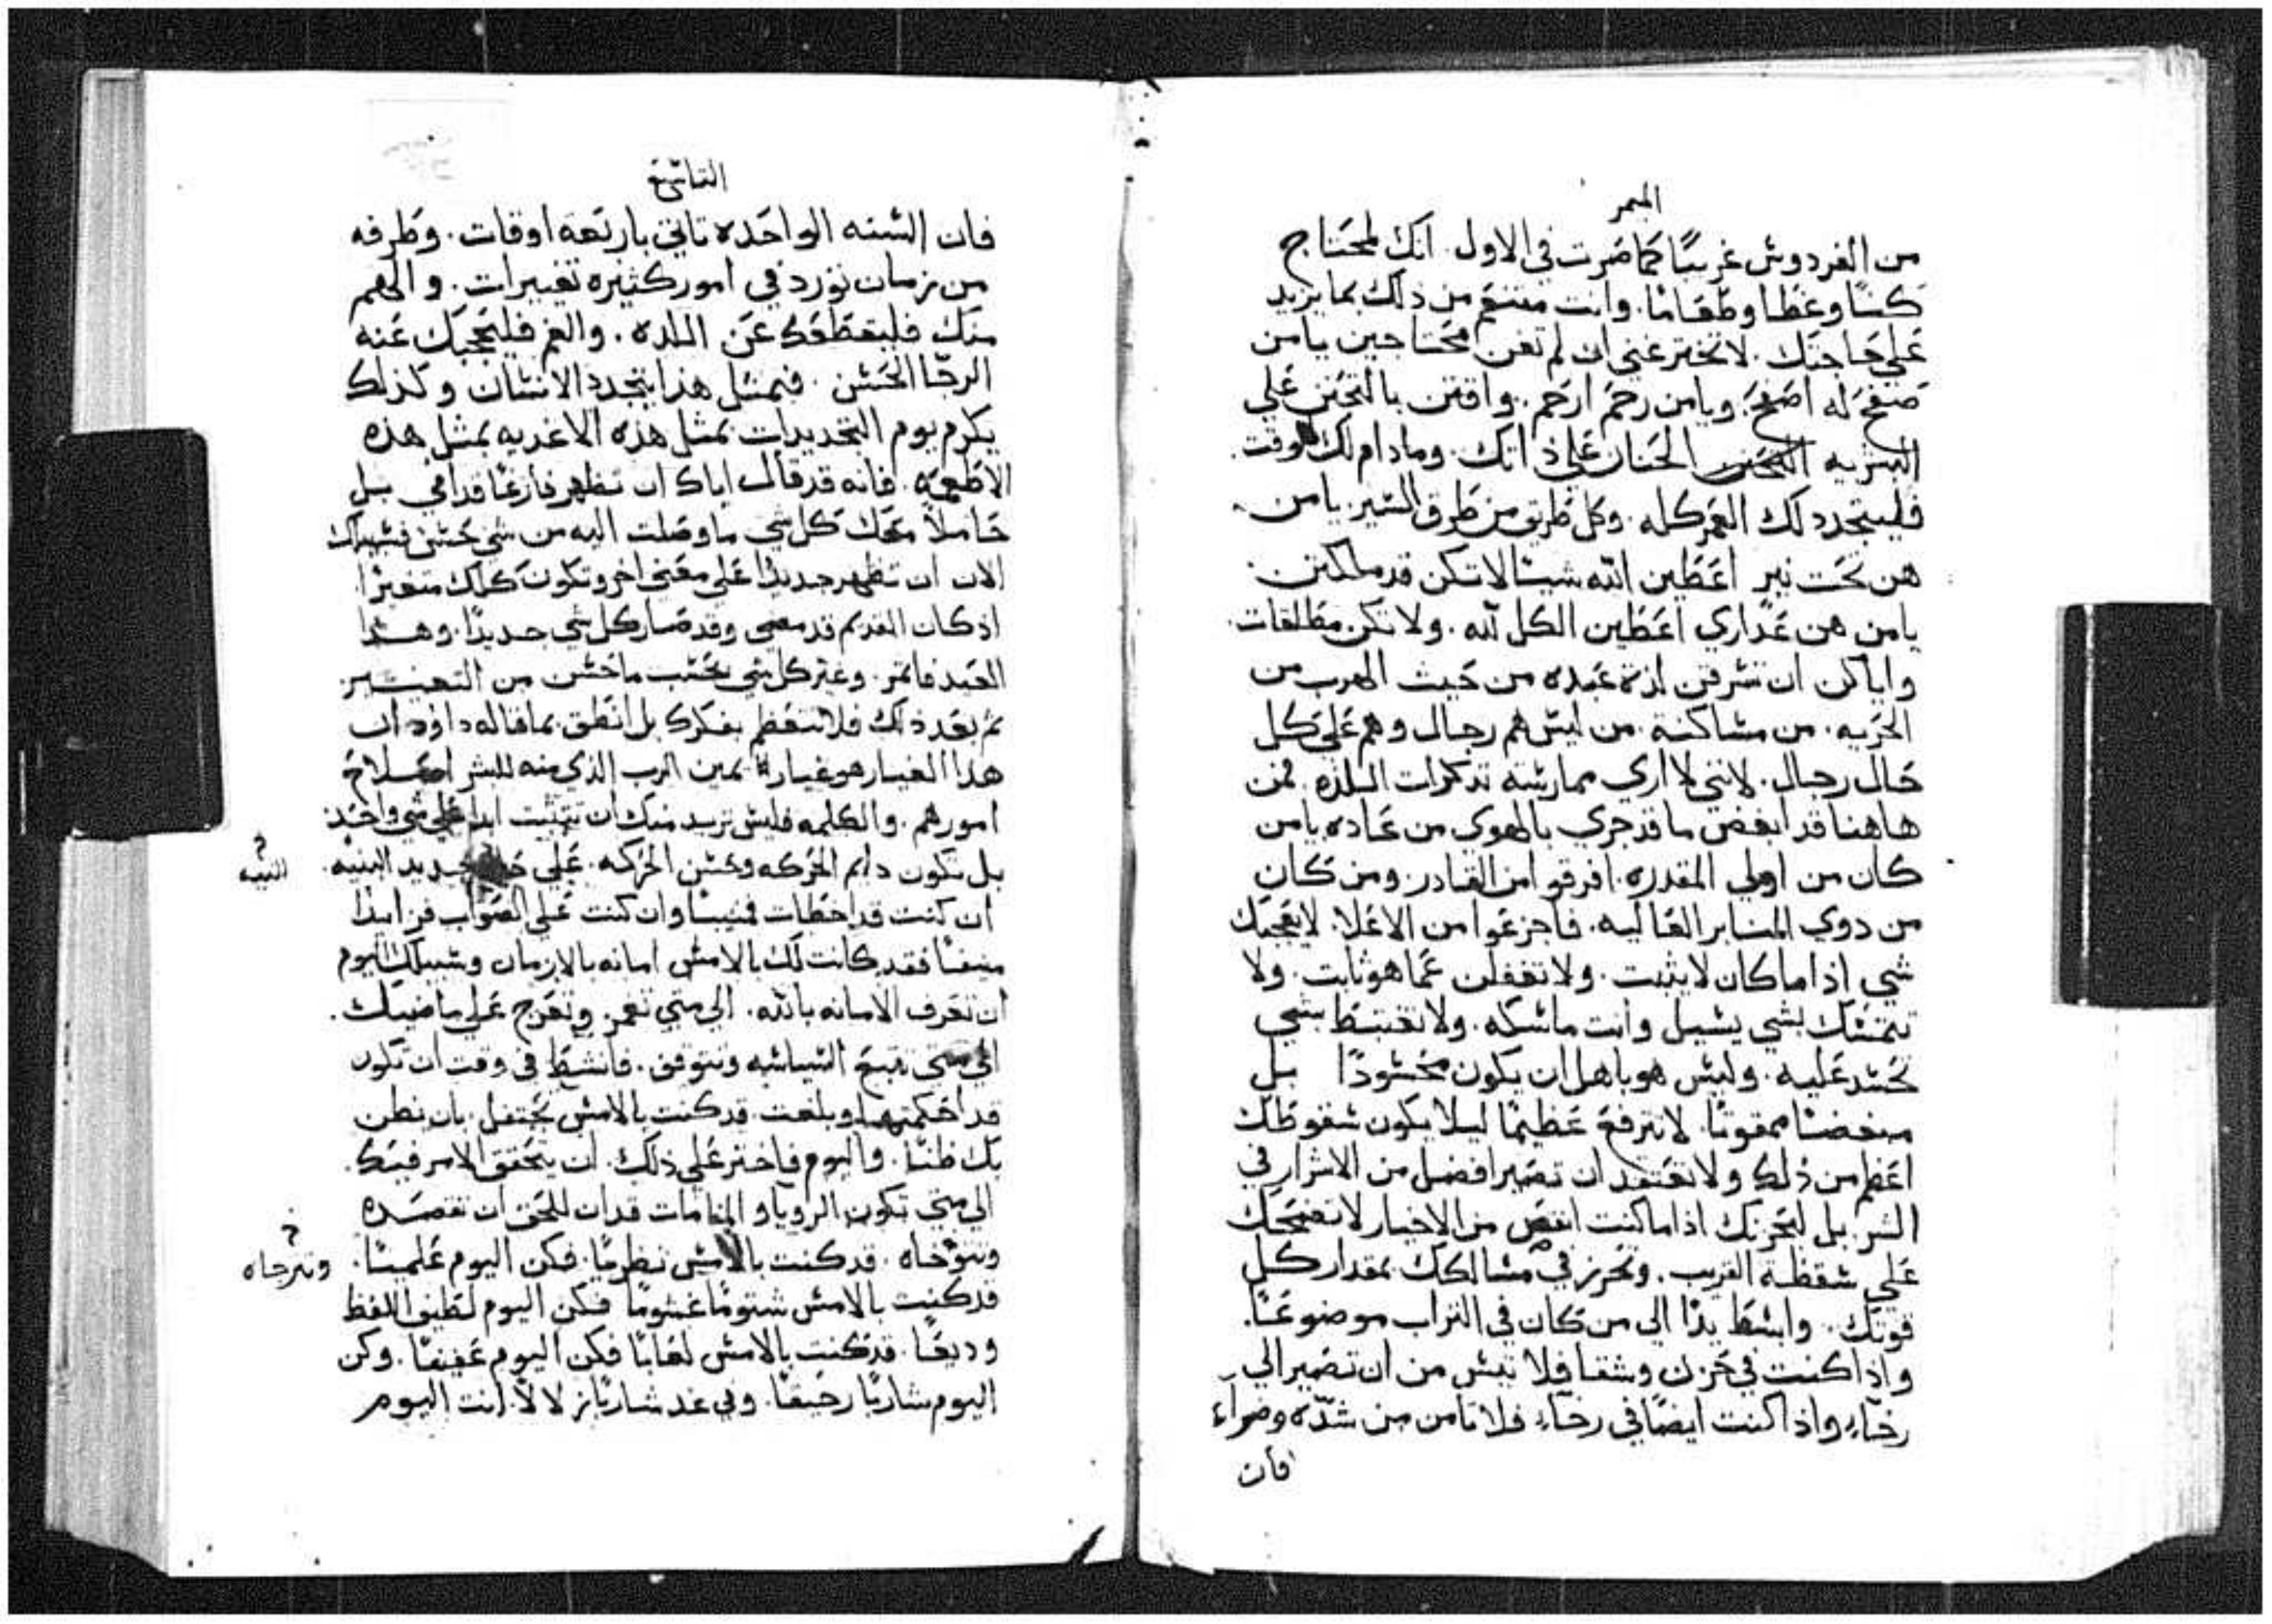 الميمر
من الفردوس غريبًا كما صرت في الاول. انك لمحتاج
كسًا وغطا وطعامًا. وانت ممتنع من ذلك بما يزيد
علي حاجتك. لا تختر غني ان لم تعن محتاجين يا من
صفح له اصفح. ويا من رحم ارحم. واقتن بالتحنن علي
البريه الحنان علي ذاتك. وما دام لك وقت
فليتجدد لك العمر كله. وكل طريق من طرق السير. يا من
هن تحت نير اعطين الله شيئًا لا تكن قد ملكتن.
يا من هن عداري اعطين الكل لله. ولا تكن مطالقات.
واياكن ان تسرقن لذة عبده من حيث الهرب من
الحريه. من مساكنة. من ليس هم رجال وهم علي كل
حال رجال. لانني لا اري ممارسة تدكرات اللذه. فمن
هاهنا قد ابغض ما قد جري بالهوي من عاده يا من
كان من اولي المقدره. افرقوا من القادر. ومن كان
من دوي المنابر العاليه. فاجزعوا من الاعلا. لا يعجبك
شي اذا ما كان لا يثبت. ولا تغفلن عما هو ثابت. ولا
تتمسك بشي يسيل وانت ماسكه. ولا تغتبط بشي
تحسد عليه. وليس هو باهل ان يكون محسودًا بل
مبغضًا ممقوتًا. لا ترفع عظيمًا ليلا يكون سقوطك
اعظم من ذلك ولا تعتقد ان تصير افضل من الاشرار في
الشر. بل ليحزنك اذا ما كنت انقص من الاخيار لا تضحك
علي سقطة القريب. وتحرز في مسالكك بمقدار كل
قوتك. وابسط يدًا الي من كان في التراب موضوعًا.
واذا كنت في حزن وشقا فلا تيئس من ان تصير الي
رخاء واذا كنت ايضًا في رخاء. فلا تامن من شدّه وضراء
فان
التاسع
فان السنه الواحده تاتي باربعه اوقات. وطرفه
من زمان تورد في امور كثيره تغييرات. والهم
منك فليقطعك عن اللده. والغم فليحجبك عنه
الرجا الحسن. فبمثل هذا يتجدد الانسان وكذلك
يكرم يوم التجديدات بمثل هذه الاغديه بمثل هذه
الاطعمه. فانه قد قال اياك ان تظهر فارغًا قدامي بل
حاملاً معك كل شي ما وصلت اليه من شي حسن فسبيلك
الان ان تظهر جديدًا علي معني اخر وتكون كلك متغيرًا
اذ كان القديم قد مضي وقد صار كل شي جديدًا. وهذا
العيد فاتمر. وغير كل شي بحسب ما حسن من التغيير
ثم بعد ذلك فلا تتعظم بفكرك بل انطق بما قاله داوود ان
هذا الغيار هو غيار يمين الرب الذي منه للبشر اصلاح
امورهم. والكلمه فليس تريد منك ان تتثبت ابدًا علي شي واحد
بل تكون دايم الحركه وحسن الحركه. علي جديد البنيه. البنيه
ان كنت قد اخطات فمنيبًا وان كنت علي الصواب فزايدًا
فقد كانت لك بالامس امانه بالازمان وسبيلك اليوم
ان تعرف الامانه بالله. الي متي تعمز وتعرج علي ما ضيتك.
الي متي تتبع السياسه وتتوفق. فانشط في وقت ان تكون
قد احكمتها وبلغت. قد كنت بالامس تحتفل بان يظن
بك ظنًا. واليوم فاختر علي ذلك. ان يتحقق الامر فيك.
الي متي تكون الرويا والمنامات قد ان للحق ان تقصده
وتتوخاه. قد كنت بالامس نظريًا. فكن اليوم علميًا. وتترجاه
قد كنت بالامس شتومًا غشومًا فكن اليوم لطيف اللفظ
وديعًا. قد كنت بالامس لعابًا فكن اليوم عفيفًا. وكن
اليوم شاربًا رحيقًا. وفي غد شاربًا زلالًا. انت اليوم